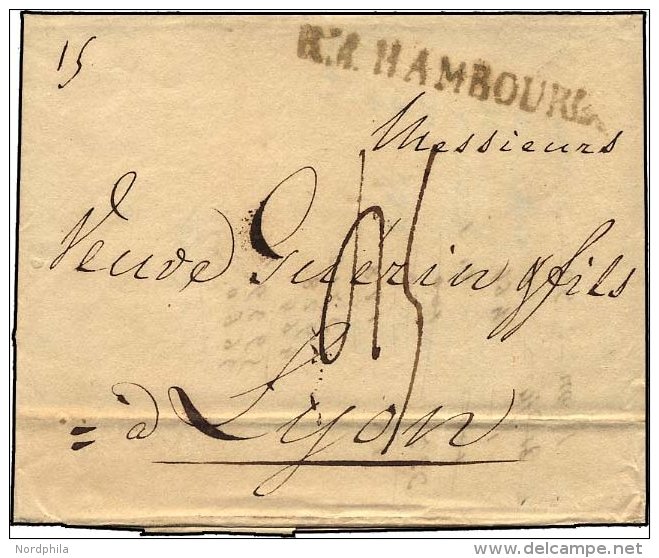 15
R.4. HAMBOURG
Messieurs
Veuve Guérin & fils
à Lyon
Nordphila
delcampe.net